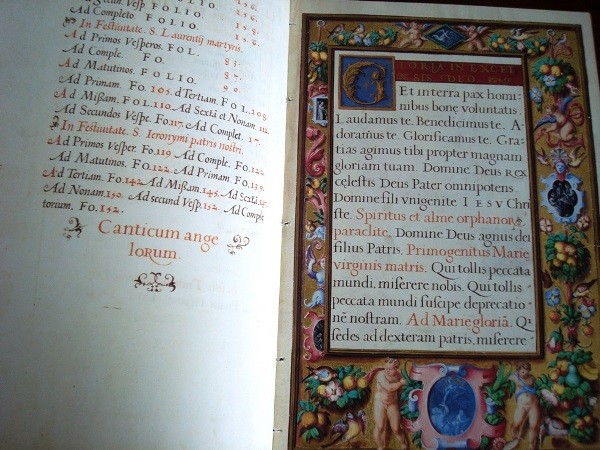 Ad Secund. Vesp FOLIO. 156.
Ad Completo. FOLIO. 158.
In Festiuitate. S. Laurentij martyris.
Ad Primos Vesperos. FOL. 83.
Ad Comple. FO. 87.
Ad Matutinos. FOLIO. 90.
Ad Primam. FO. 105. ad Tertiam. FOL. 108.
Ad Missam. FOL. 110. Ad Sextã et Nonam. 112.
Ad Secundos Vespe. FO. 117. Ad Complet. 17.
In Festiuitate. S. Ieronymi patris nostri.
Ad Primos Vesper. FO. 119. Ad Comple. FO. 122.
Ad Matutinos. FO. 122. Ad Primam. FO. 139.
Ad Tertiam. FO. 142. Ad Missam. 145. Ad Sextã. 147.
Ad Nonam. 150. Ad secund Vesp. 152. Ad Comple
torium. FO. 152.
Canticum ange
lorum.
GLORIA IN EXCEL
SIS DEO
Et in terra pax homi
nibus bonę voluntatis.
Laudamus te. Benedicimus te. A
doramus te. Glorificamus te. Gra
tias agimus tibi propter magnam
gloriam tuam. Domine Deus rex
cęlestis Deus Pater omnipotens.
Domine fili vnigenite IESV Chri
ste. Spiritus et alme orphanorũ
paraclite. Domine Deus agnus dei
filius Patris. Primogenitus Marię
virginis matris. Qui tollis peccata
mundi, miserere nobis. Qui tollis
peccata mundi suscipe deprecatio
nẽ nostram. Ad Marię gloriã. Q
sedes ad dexteram patris, miserere